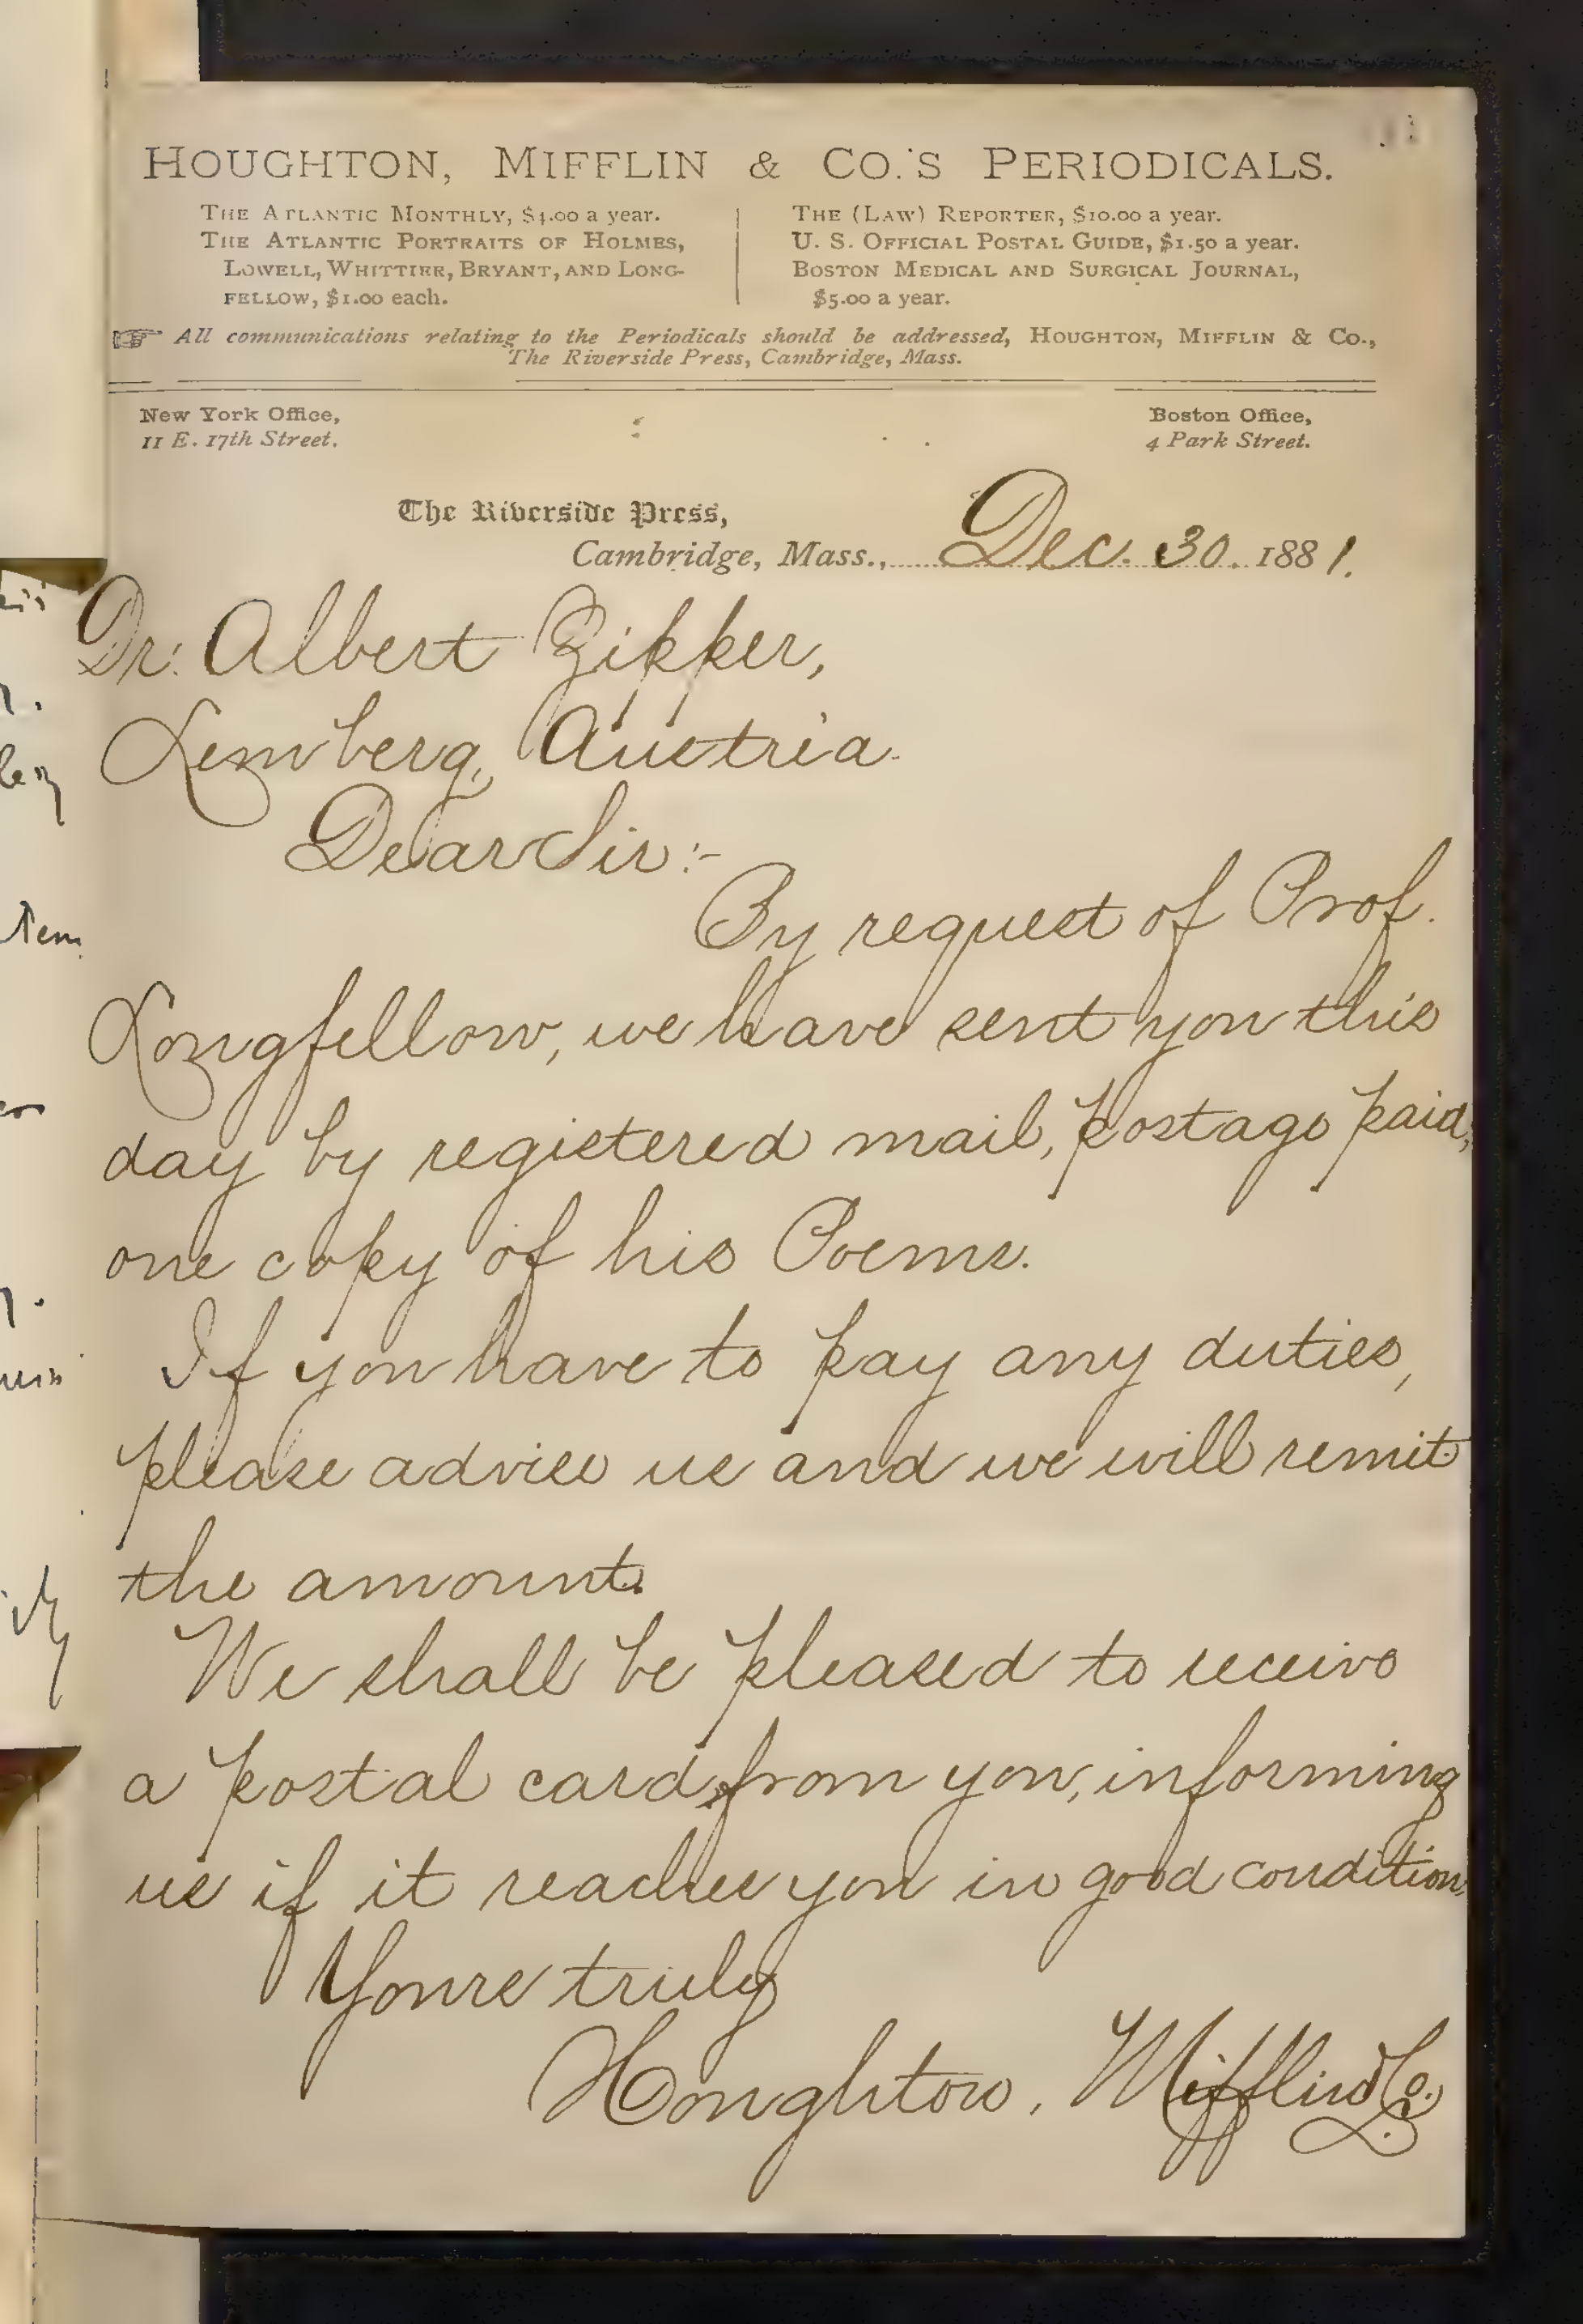 HOUGHTON, MIFFLIN & CO.'S PERIODICALS.
THE ATLANTIC MONTHLY, $4.00 a year.
THE ATLANTIC PORTRAITS OF HOLMES,
LOWELL, WHITTIER, BRYANT, AND LONG-
FELLOW, $1.00 each.
THE (LAW) REPORTER, $10.00 a year.
U. S. OFFICIAL POSTAL GUIDE, $1.50 a year.
BOSTON MEDICAL AND SURGICAL JOURNAL,
$5.00 a year.
☞ All communications relating to the Periodicals should be addressed, HOUGHTON, MIFFLIN & CO.,
The Riverside Press, Cambridge, Mass.
New York Office,
11 E. 17th Street.
Boston Office,
4 Park Street.
The Riverside Press,
Cambridge, Mass., Dec. 30. 1881.
Dr. Albert Zipper,
Lemberg, Austria.
Dear Sir:-
By request of Prof.
Longfellow, we have sent you this
day by registered mail, postage paid,
one copy of his Poems.
If you have to pay any duties,
please advise us and we will remit
the amount.
We shall be pleased to receive
a postal card from you, informing
us if it reaches you in good condition.
Yours truly
Houghton, Mifflin & Co.